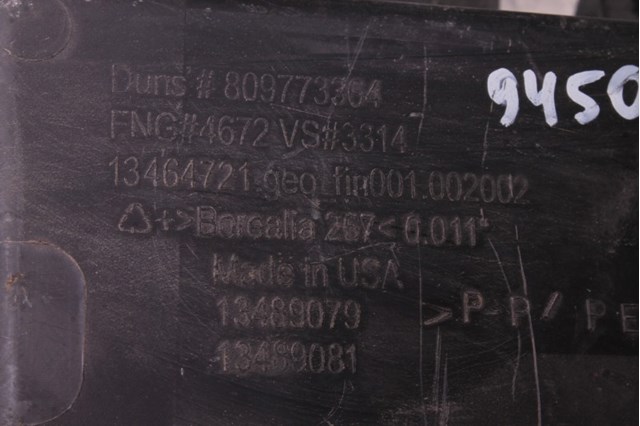 Duns # 809773364
FNG#4672 VS#3314
13464721.geo_fin001.002002
+>Borealla 267< 0.011"
Made in USA
13489079
13489081
>P-P/PE
9450